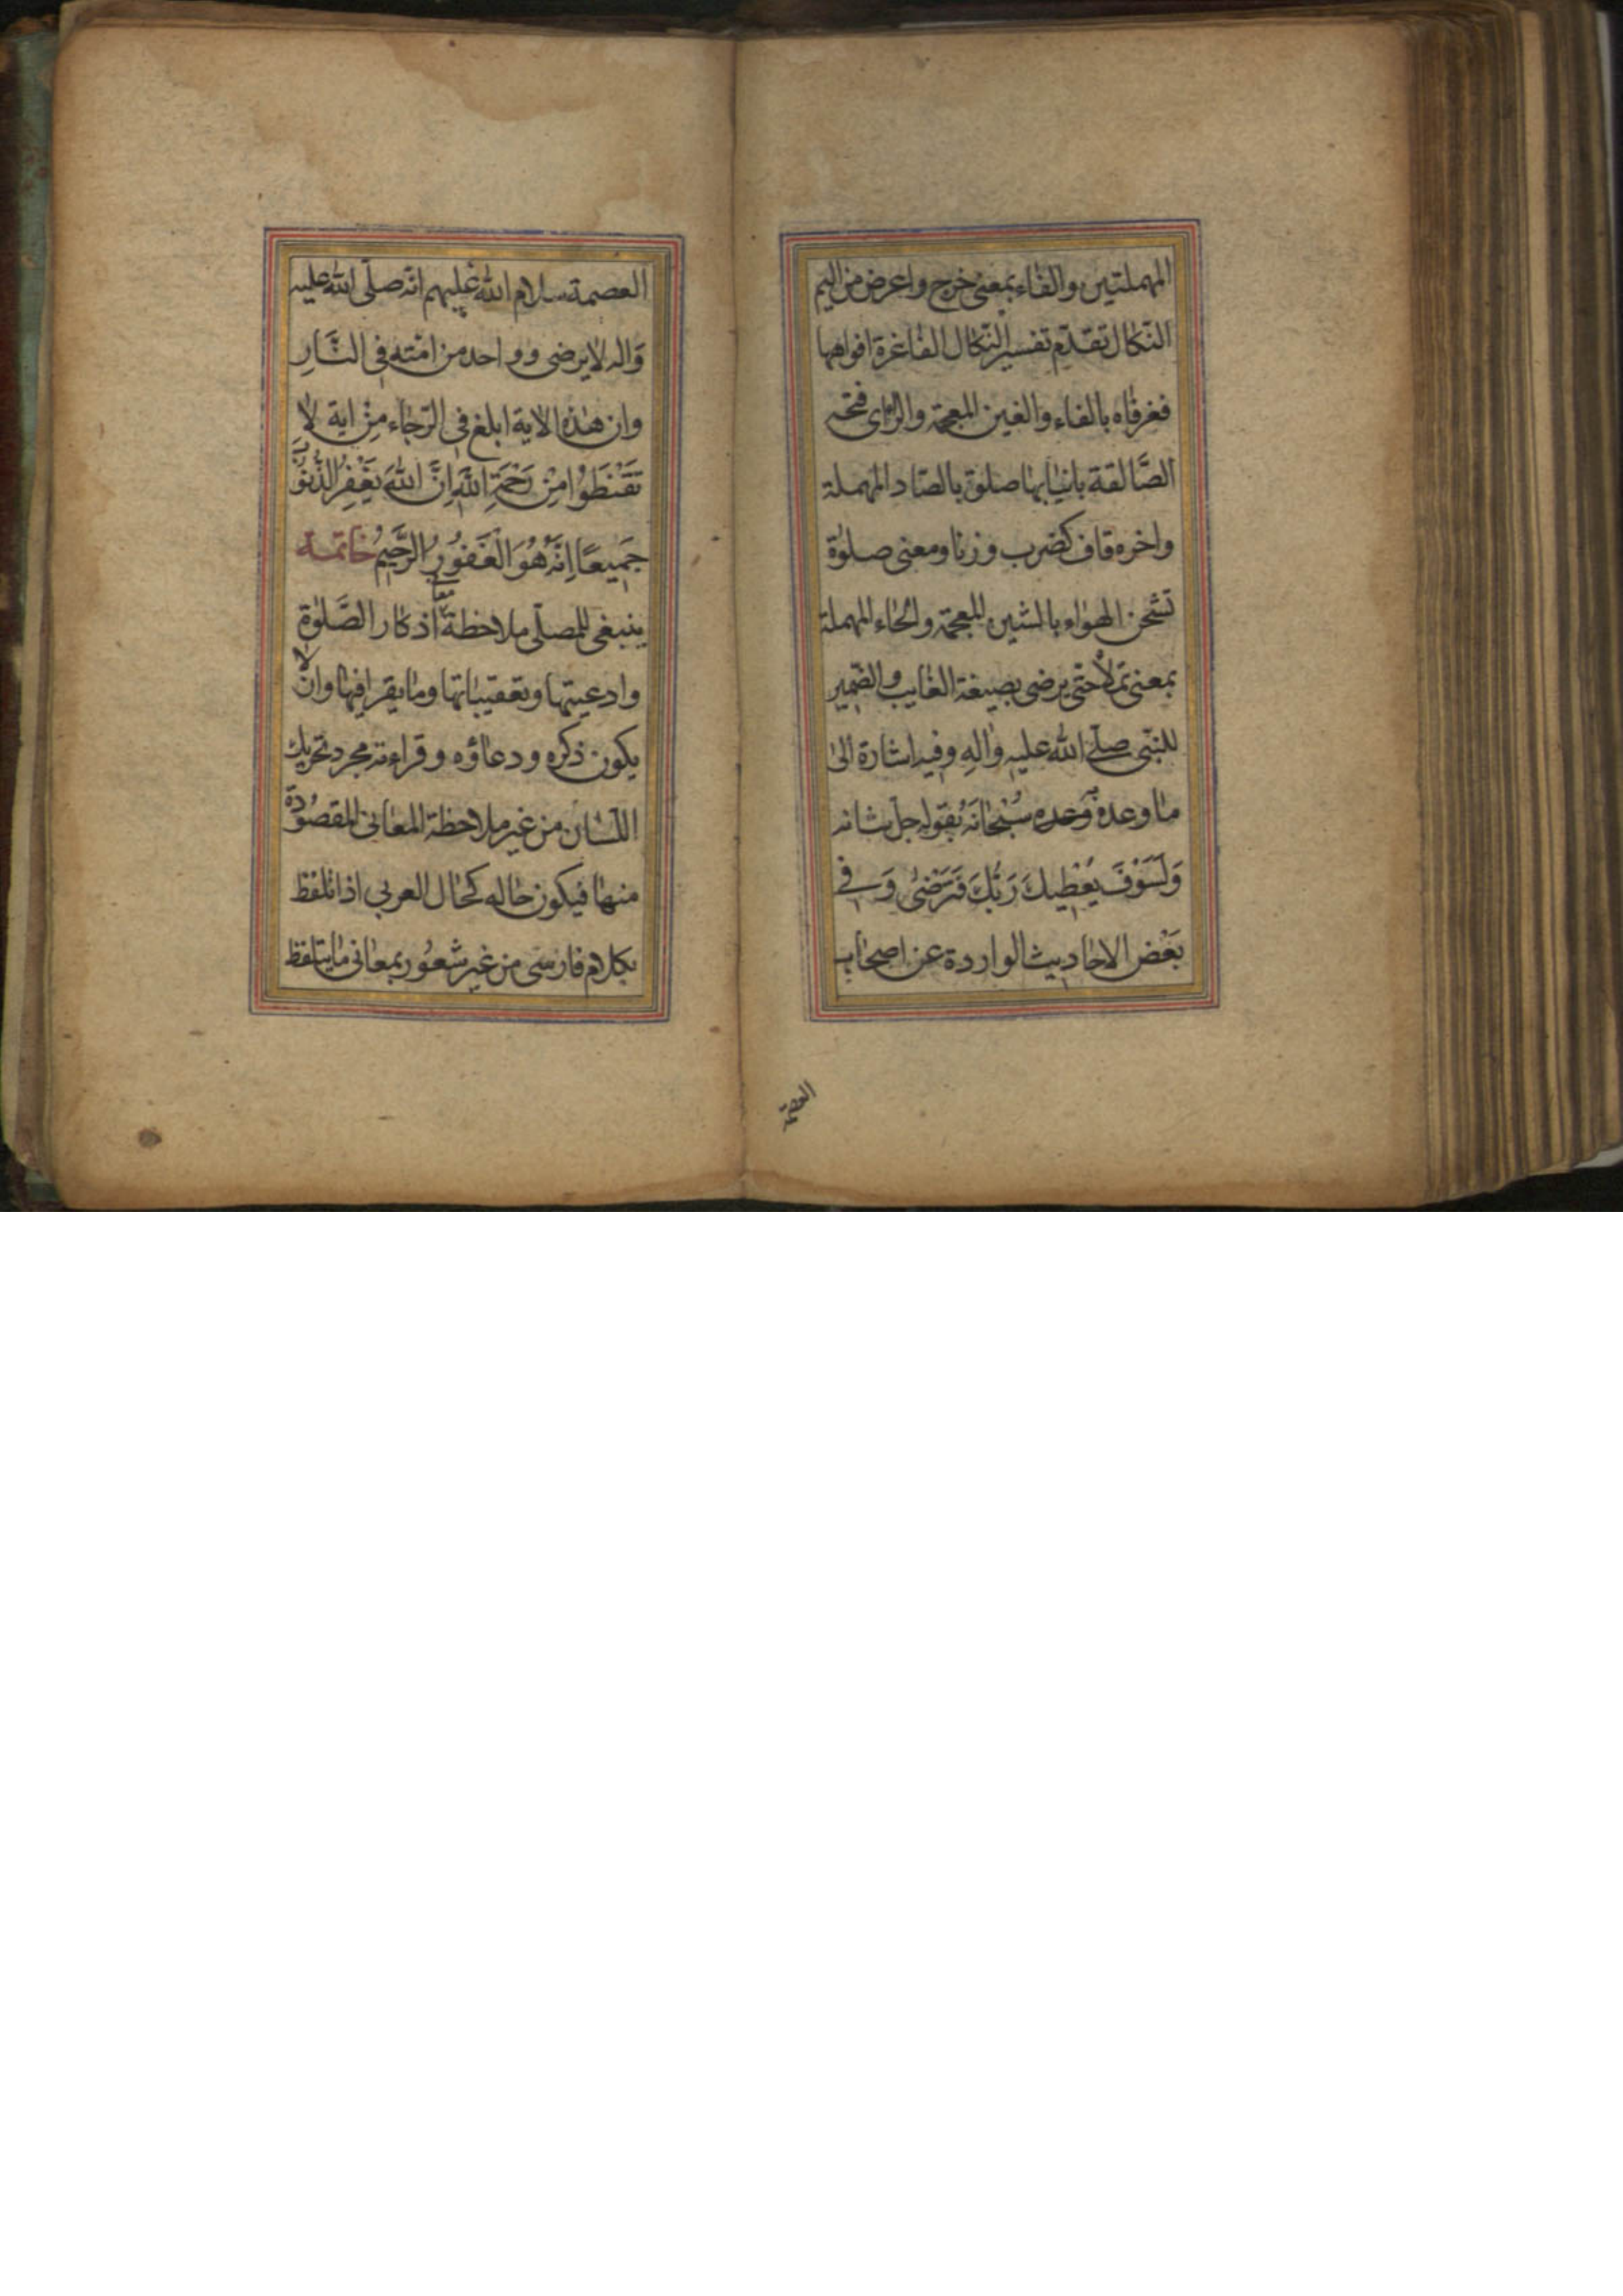 المهملتين والفاء بمعنى خرج واعرض من اليم
النّكال تقدّم تفسير النّكال الفاغرة افواهها
فغرفاه بالفاء والغين المعجمة والرّاى فتحه
الصَّالقة بانيابها صلق بالصّاد المهملة
واخره قاف كضرب وزنا ومعنى صلوة
تشحن الهواء بالشين المعجمة والحاء المهملة
بمعنى تملأ حتى يرضى بصيغة الغايب والضمير
للنبّى صلّى الله عليه واله وفيه اشارة الى
ما وعده وعده سُبْحَانَهُ بقوله جل شانه
وَلَسَوْفَ يُعْطِيكَ رَبُّكَ فَتَرْضىٰ وَفى
بَعْض الاحاديث الواردة عن اصحاب
العصمة
العصمة سلام الله عليهم انّه صلّى الله عليه
وَاله لا يرضى وواحد من امّته فى النَّارِ
وان هذه الاية ابلغ فى الرّجاء مِنْ اية لا
تَقْنَطُوا مِنْ رَحْمَةِ اللهِ اِنَّ اللهَ يَغْفِرُ الذُّنُوبَ
جَمِيعًا اِنَّهُ هُوَ الْغَفُورُ الرَّحِيمُ خاتمة
ينبغى للمصلّى ملاحظة معانى اذكار الصَّلوٰةِ
وادعيتها وتعقيباتها وما يقرا فيها وان لا
يكون ذكره ودعاؤه وقراءته مجرد تحريك
اللّسان من غير ملاحظة المعانى المقصُودة
منها فيكون حاله كحال العربى اذا تلفظ
بكلام فارسى من غير شعُور بمعانى ما يتلفظ